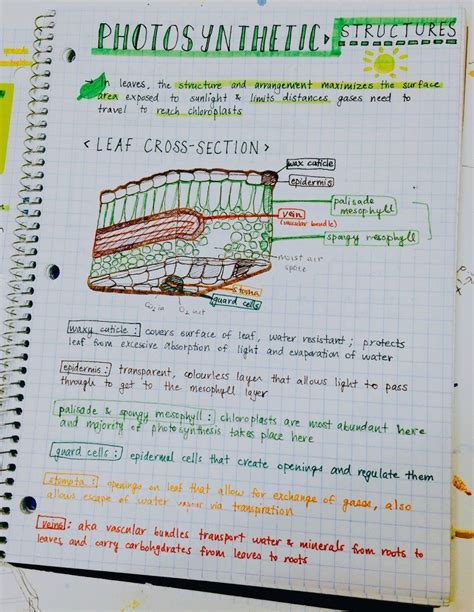 PHOTOSYNTHETIC STRUCTURES
In leaves, the structure and arrangement maximizes the surface
area exposed to sunlight & limits distances gases need to
travel to reach chloroplasts
< LEAF CROSS-SECTION >
wax cuticle
epidermis
palisade
mesophyll
vein
(vascular bundle)
spongy mesophyll
moist air
space
stoma
guard cells
CO2 in
O2 out
waxy cuticle : covers surface of leaf, water resistant ; protects
leaf from excessive absorption of light and evaporation of water
epidermis : transparent, colourless layer that allows light to pass
through to get to the mesophyll layer
palisade & spongy mesophyll : chloroplasts are most abundant here
and majority of photosynthesis takes place here
guard cells : epidermal cells that create openings and regulate them
stomata : openings on leaf that allow for exchange of gases, also
allows escape of water via transpiration
veins : aka vascular bundles transport water & minerals from roots to
leaves and carry carbohydrates from leaves to roots